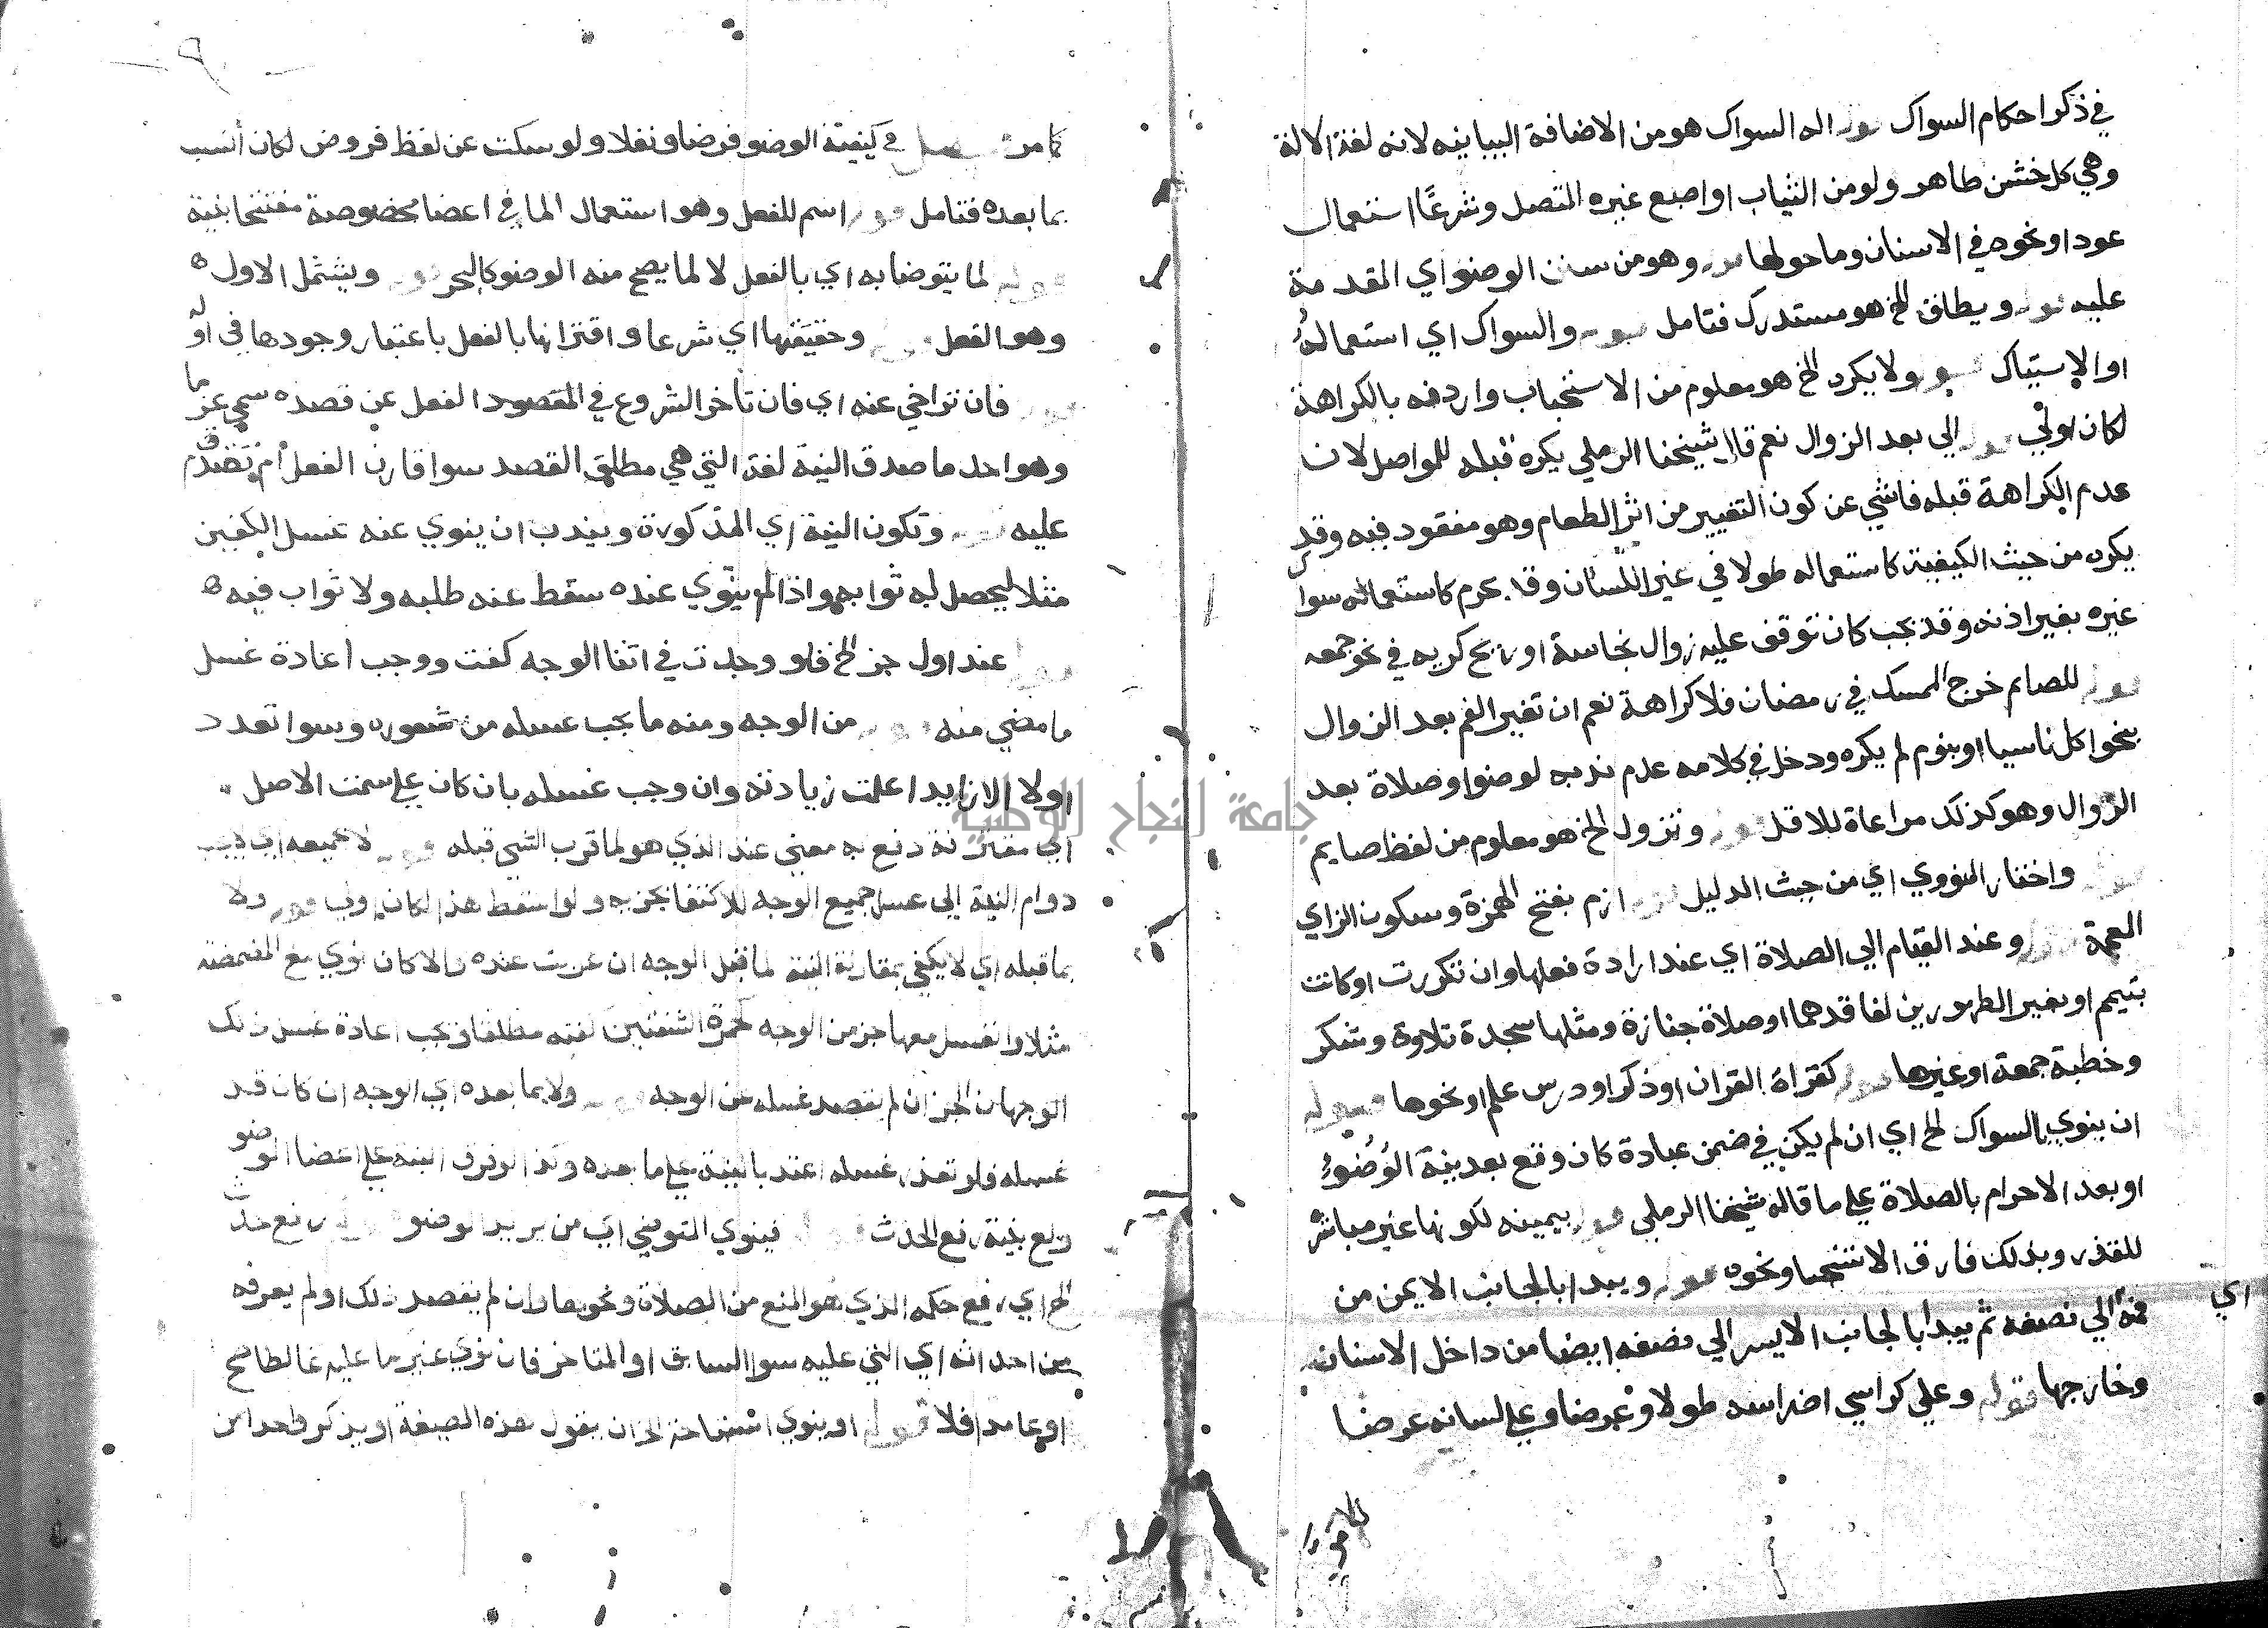 في ذكر احكام السواك قوله اله السواك هو من الاضافة البيانيه لانه لغة الالة
وهي كل خشن طاهر ولو من الثياب او اصبع غيره المتصل وشرعًا استعمال
عود او نحوه في الاسنان وما حولها قوله وهو من سنن الوضو اي المقدمة
عليه قوله ويطلق الخ هو مستدرك فتامل قوله والسواك اي استعماله
او الاستياك قوله ولا يكره الخ هو معلوم من الاستحباب واردفه بالكراهة
لكان اولي قوله الي بعد الزوال نعم قال شيخنا الرملي يكره قبله للمواصل لان
عدم الكراهة قبله ناشي عن كون التغيير من اثر الطعام وهو مفقود فيه وقد
يكره من حيث الكيفية كاستعماله طولا في غير اللسان وقد يحرم كاستعماله سواك
غيره بغير اذنه وقد يجب كان توقف عليه زوال نجاسة او ريح كريه في نحو جمعه
قوله للصايم خرج الممسك في رمضان فلا كراهة نعم ان تغير الفم بعد الزوال
بنحو اكل ناسيا او بنوم لم يكره ودخل في كلامه عدم ندبه لوضو او صلاة بعد
الزوال وهو كذلك مراعاة للاقل قوله وتزول الخ هو معلوم من لفظ صايم
قوله واختار النووي اي من حيث الدليل قوله ازم بفتح الهمزة وسكون الزاي
المعجمة قوله وعند القيام الي الصلاة اي عند ارادة فعلها وان تكررت او كانت
بتيمم او بغير الطهورين لفاقدهما او صلاة جنازة ومثلها سجدة تلاوة وشكر
وخطبة جمعة او غيرها قوله كقراة القران او ذكر او درس علم او نحوها قوله
ان ينوي بالسواك الخ اي ان لم يكن في ضمن عبادة كان وقع بعد نية الوُضُوءُ
او بعد الاحرام بالصلاة علي ما قاله شيخنا الرملي قوله بيمينه لكونها غير مباشرة
للقذر وبذلك فارق الاستنجا ونحوه قوله ويبدا بالجانب الايمن من
فمه الي نصفه ثم يبدأ بالجانب الايسر الي نصفه ايضا من داخل الاسنان
اي
وخارجها قوله وعلي كراسي اضراسه طولا وعرضا وعلي لسانه عرضا
كما مر
كما مر فصل في كيفية الوضو فرضا ونفلا ولو سكت عن لفظ فروض لكان أنسب
بما بعده فتامل قوله اسم للفعل وهو استعمال الما في اعضا مخصوصة مفتتحا بنية
قوله لما يتوضا به اي بالفعل لا لما يصح منه الوضو كالبحر قوله ويشتمل الاول
وهو الفعل قوله وحقيقتها اي شرعا واقترانها بالفعل باعتبار وجودها في اوله
قوله فان تراخي عنه اي فان تأخر الشروع في المقصود الفعل عن قصده سمي عزما
وهو احد ما صدق النية لغة التي هي مطلق القصد سوا قارن الفعل أم تقدم
عليه قوله وتكون النية اي المذكورة ويندب ان ينوي عنه غسل الكفين
مثلا ليحصل له ثوابه واذا لم ينوي عنده سقط عنه طلبه ولا ثواب فيه
قوله عند اول جز الخ فلو وجدت في اثنا الوجه كفت ووجب أعادة غسل
ما مضي منه قوله من الوجه ومنه ما يجب غسله من شعوره وسوا تعدد
اولا الا زايدا علمت زيادته وان وجب غسله بان كان علي سمت الاصل
اي مقترنة دفع به معني عند الذي هو لما قرب الشي قبله قوله لا جميعه اي
دوام النية الي غسل جميع الوجه للاكتفا بجزيه ولو اسقط هذا لكان اولي قوله ولا
بما قبله اي لا يكفي بمقارنة النية لما قبل الوجه ان عزبت عنده والا كان نوي مع المضمضة
مثلا وانغسل معها جز من الوجه كحمرة الشفتين كفته مطلقا وتجب اعادة غسل ذلك
الجز ان لم يقصد غسله عن الوجه قوله ولا بما بعده اي الوجه ان كان قد
غسله فلو تعذر غسله اعتد بالنية علي ما بعده ولذا لو فرق النية علي اعضا الوضو
قوله فينوي المتوضي اي من يريد الوضو قوله رفع حدث
الخ اي رفع حكمه الذي هو المنع من الصلاة ونحوها وان لم يقصد ذلك او لم يعرفه
من احداثه اي التي عليه سوا السابق او المتاخر فان نوي غير ما عليه غالطا صح
او عامدا فلا قوله او ينوي استباحة الخ ان يقول هذه الصيغة او يذكر واحدا من
جامعة النجاح الوطنية